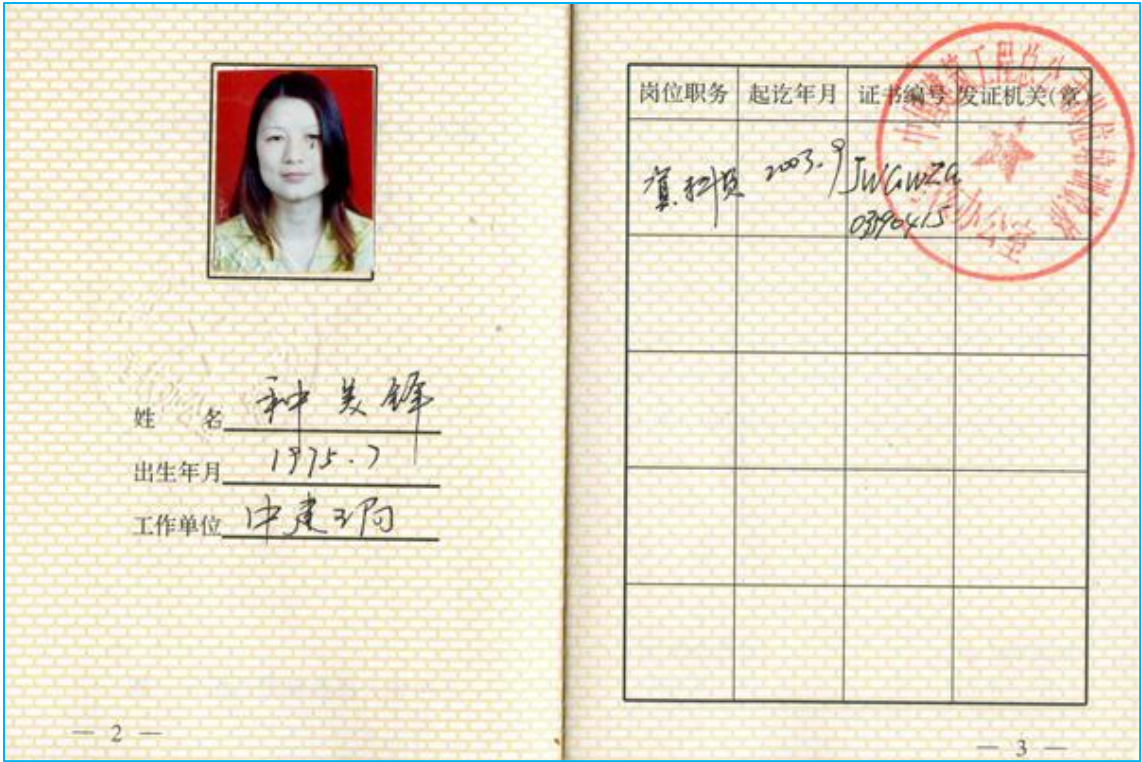 姓 名 种美锋
出生年月 1975.7
工作单位
— 2 —
岗位职务 起讫年月 证书编号 发证机关(章)
资料员 2003.9 JWGWZG
03190415
中国建筑工程总公司岗位培训
办公室
— 3 —